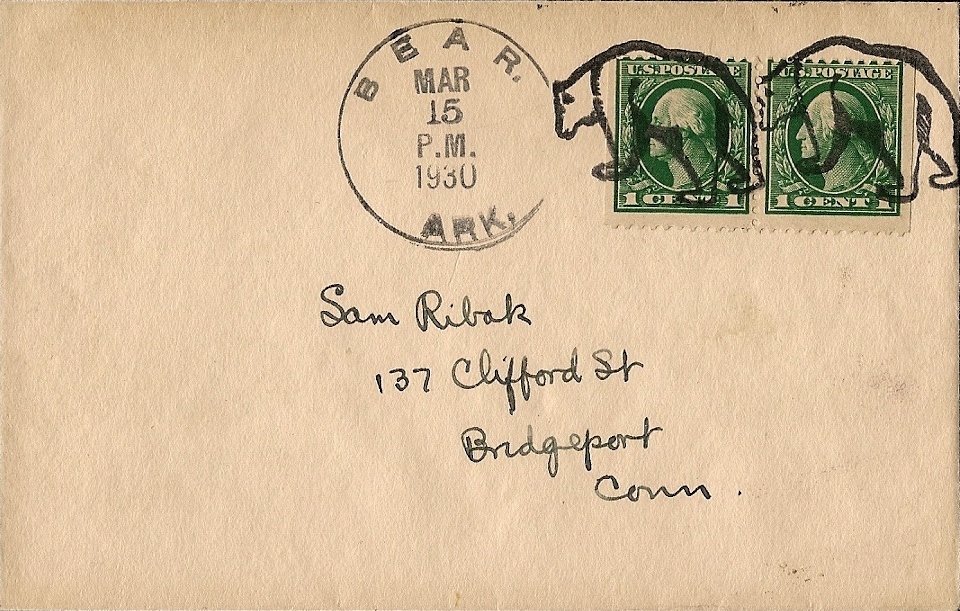 BEAR.
MAR
15
P.M.
1930
ARK.
U.S.POSTAGE
1 CENT 1
U.S.POSTAGE
1 CENT 1
Sam Ribak
137 Clifford St
Bridgeport
Conn.